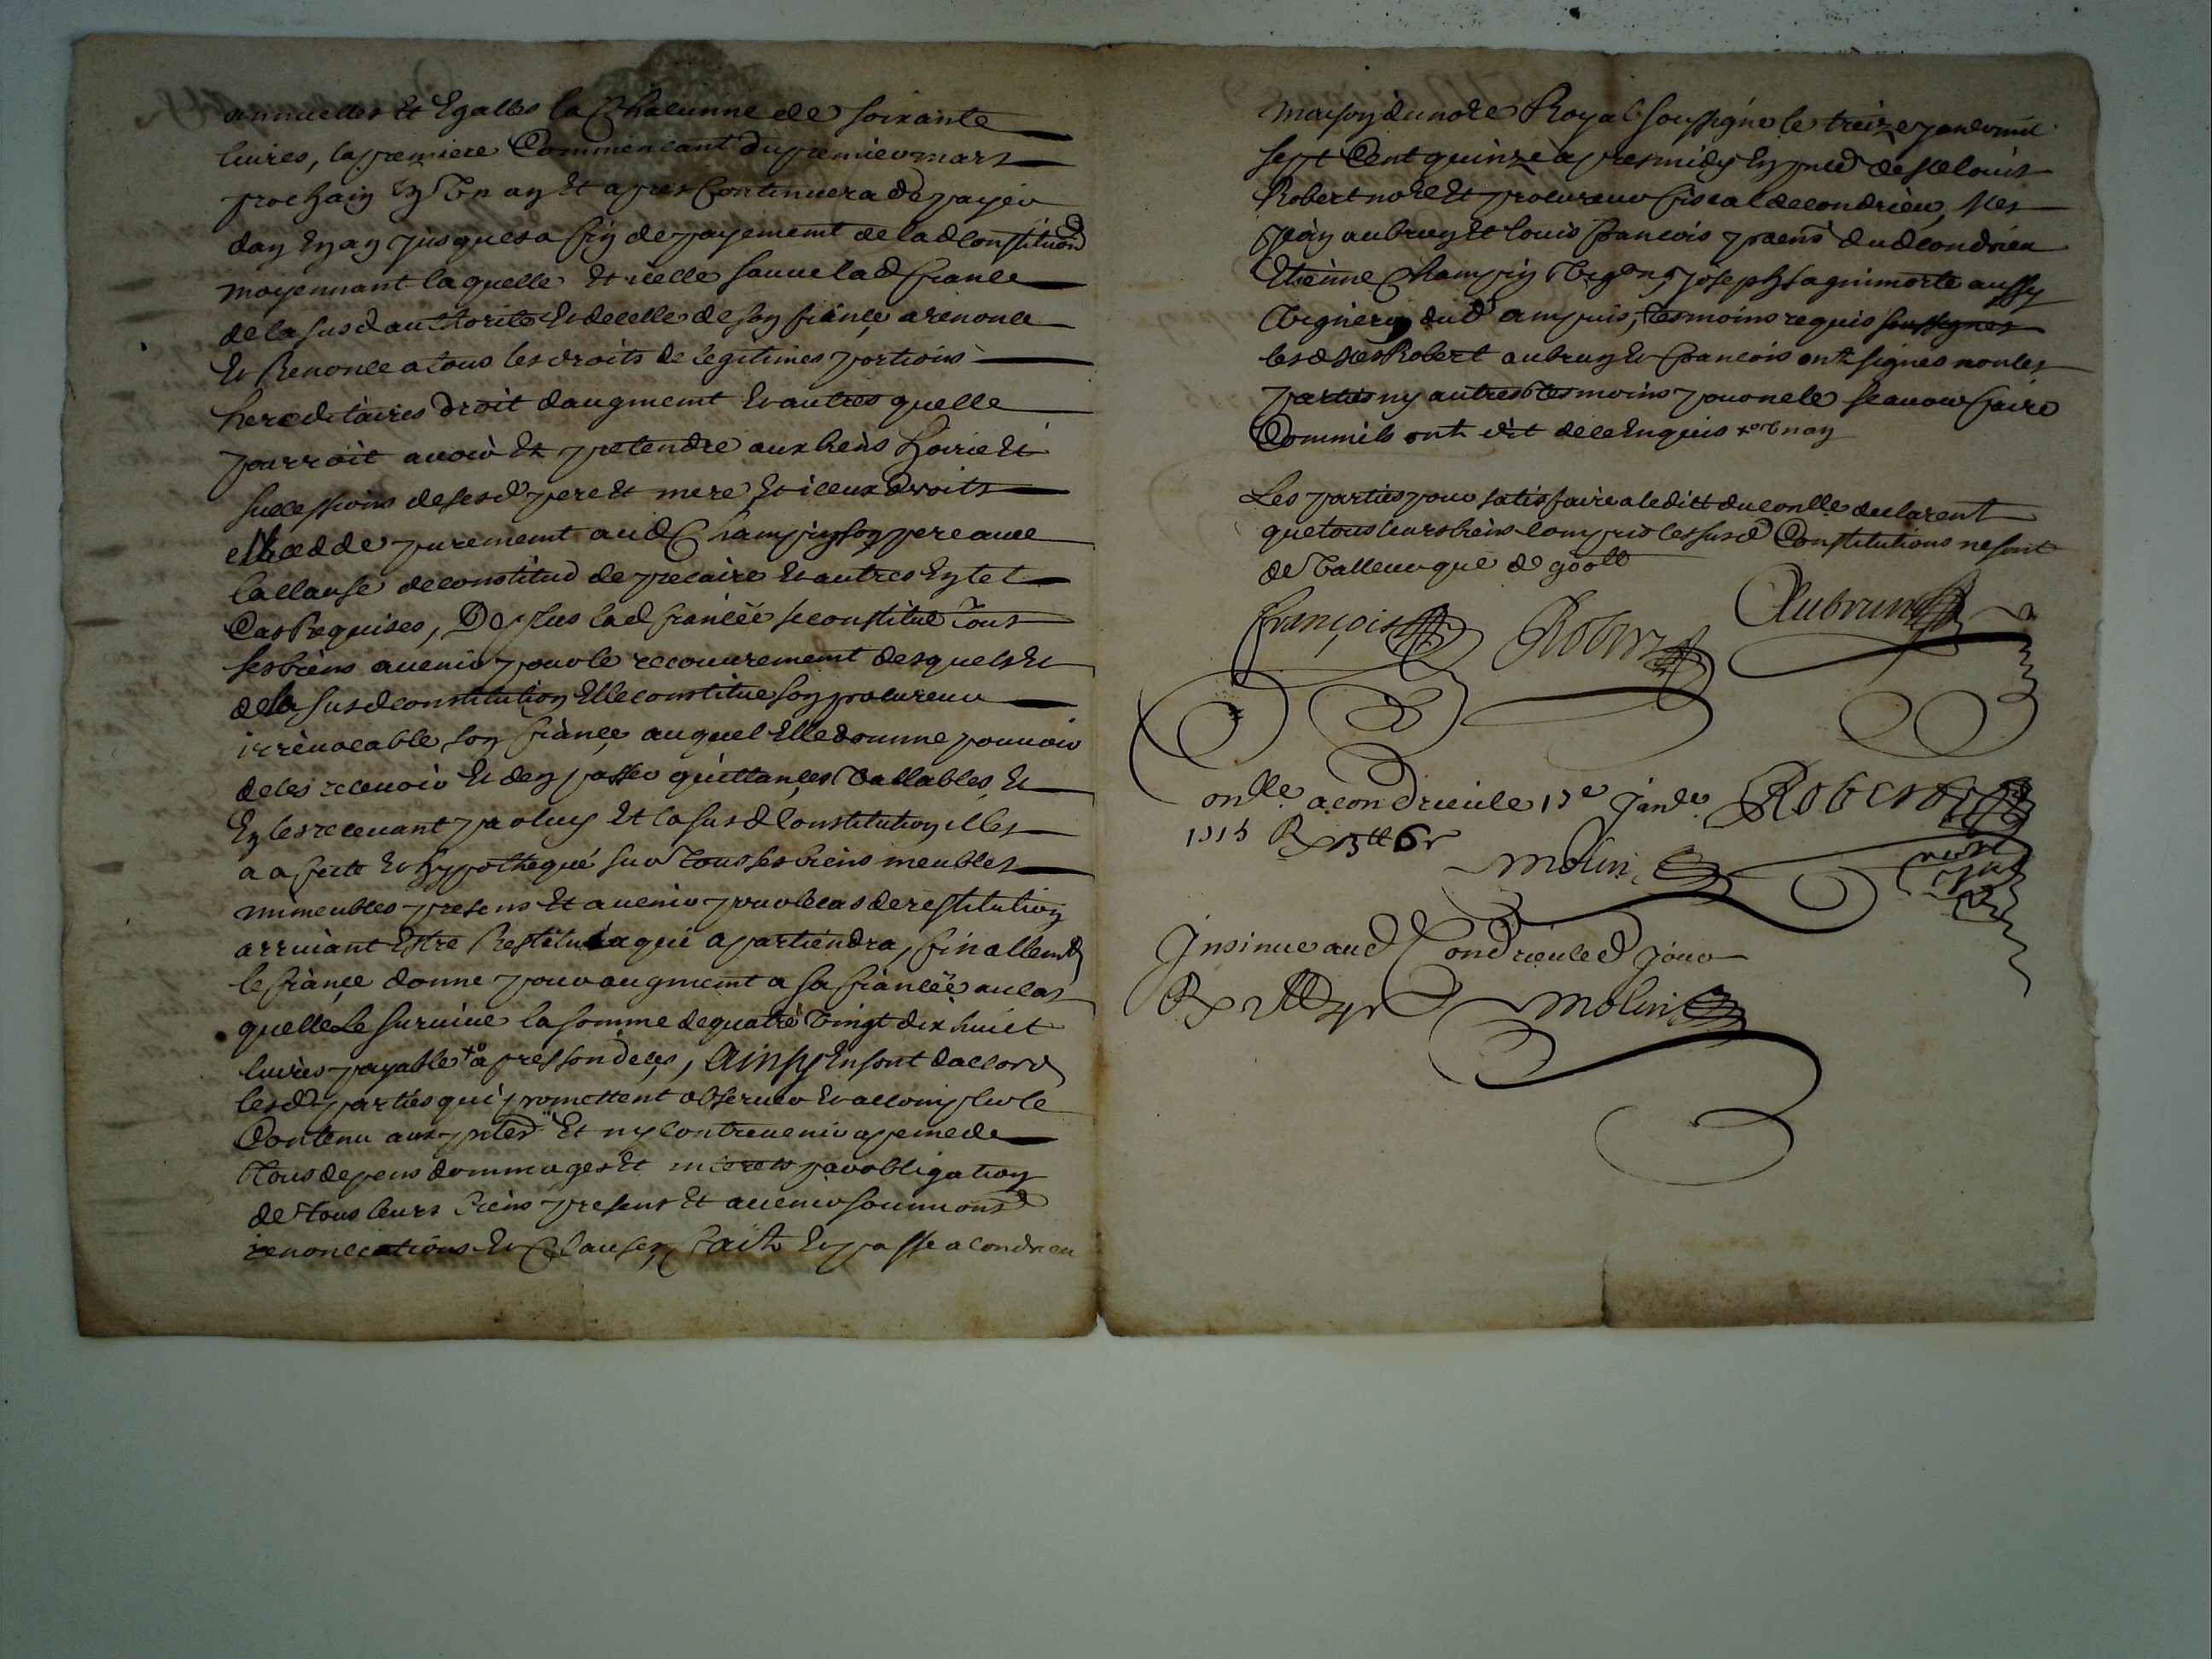 annuelles Et Egalles la Chacunne de soixante
liures, la premiere Commencant du premier mars
prochain En Un an Et apres Continuera de payer
dan En an jusques a fin de payement de lad Constituon
moyennant laquelle Et icelle sauue lad fiance
de la susd authorite Et de celle de son fiancé a renonce
Et Renonce a tous les droits de legitimes portions
hereditaires droit daugment Et autres quelle
pourroit auoir Et pretendre aux biens hoirie Et
successions de sesd pere Et mere Et iceux droits
elle cedde purement aud Champin son pere auec
la clause de constitud de precaire Et autres En tel
Cas Requises, De plus lad fiancéé se constitue Tous
ses biens auenir pour le recouurement desquels Et
de la susd constitution Elle constitue son procureur
irreuocable son fiancé auquel Elle donne pouuoir
de les receuoir Et den passer quittances Vallables Et
En les receuant par luy Et la susd Constitution illes
a afecté Et hypothequé sur Tous ses biens meubles
immeubles presens Et auenir pour le cas de restitution
arriuant Estre Restitué a qui apartiendra, finallemt
le fiancé donne pour augment a sa fiancéé au cas
quelle Le suruiue la somme de quatre Vingt dix huict
liures payable apres son deces, Ainsy En sont daccord
lesd parties qui promettent obseruer Et accomplir le
Contenu aux pntes Et ny contreuenir a peine de
Tous depens dommages Et interets par obligation
de Tous leurs biens presens Et auenir soumons
renonciations Et Clauses, Fait Et passé a Condrieu
maison du nore Royal soussigne le treize januier mil
sept Cent quinze apres midy En pnce de sr louis
Robert nore Et procureur fiscal de condrieu, srs
Jean aubrun Et louis francois dud condrieu
Etienne Champin Vigneron, joseph aussy
Vigneron dud ampuis, tesmoins requis soussignes
lesd srs Robert aubrun Et francois ont signes non les
parties ny autres tesmoins pour ne le scauoir faire
Comm ils ont dit de ce Enquis
Les parties pour satisfaire a ledict du conlle declarent
que tous leurs biens compris les susd Constitutions ne sont
de Valleur que de
françois Robert Aubrun
Conlle a condrieu le 13e januer Robert
1715 R
Molin
Insinue aud Condrieu led jour
R Molin